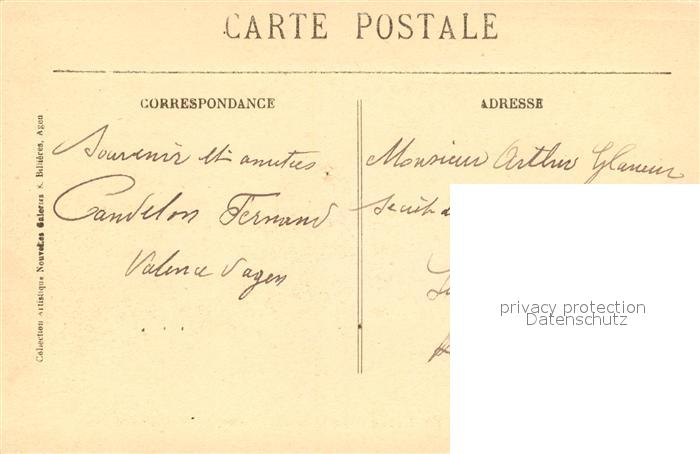 CARTE POSTALE
CORRESPONDANCE
Souvenir et amitiés
Candelon Fernand
Valence d'agen
. . .
ADRESSE
Monsieur Arthur Glaneur
privacy protection
Datenschutz
Collection Artistique Nouvelles Galeries, Agen